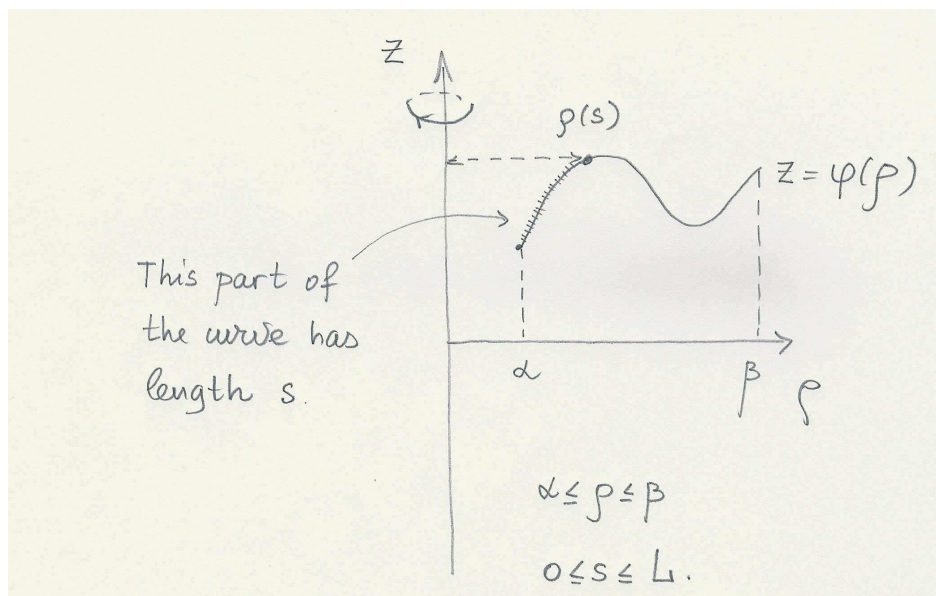 Z
ρ(s)
Z = φ(ρ)
This part of
the curve has
length s.
α
β
ρ
α ≤ ρ ≤ β
0 ≤ s ≤ L.